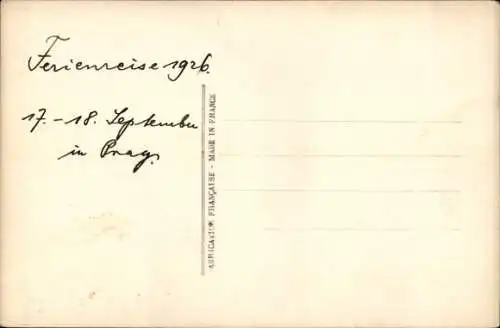 Ferienreise 1926.
17. - 18. September
in Prag.
FABRICATION FRANÇAISE - MADE IN FRANCE